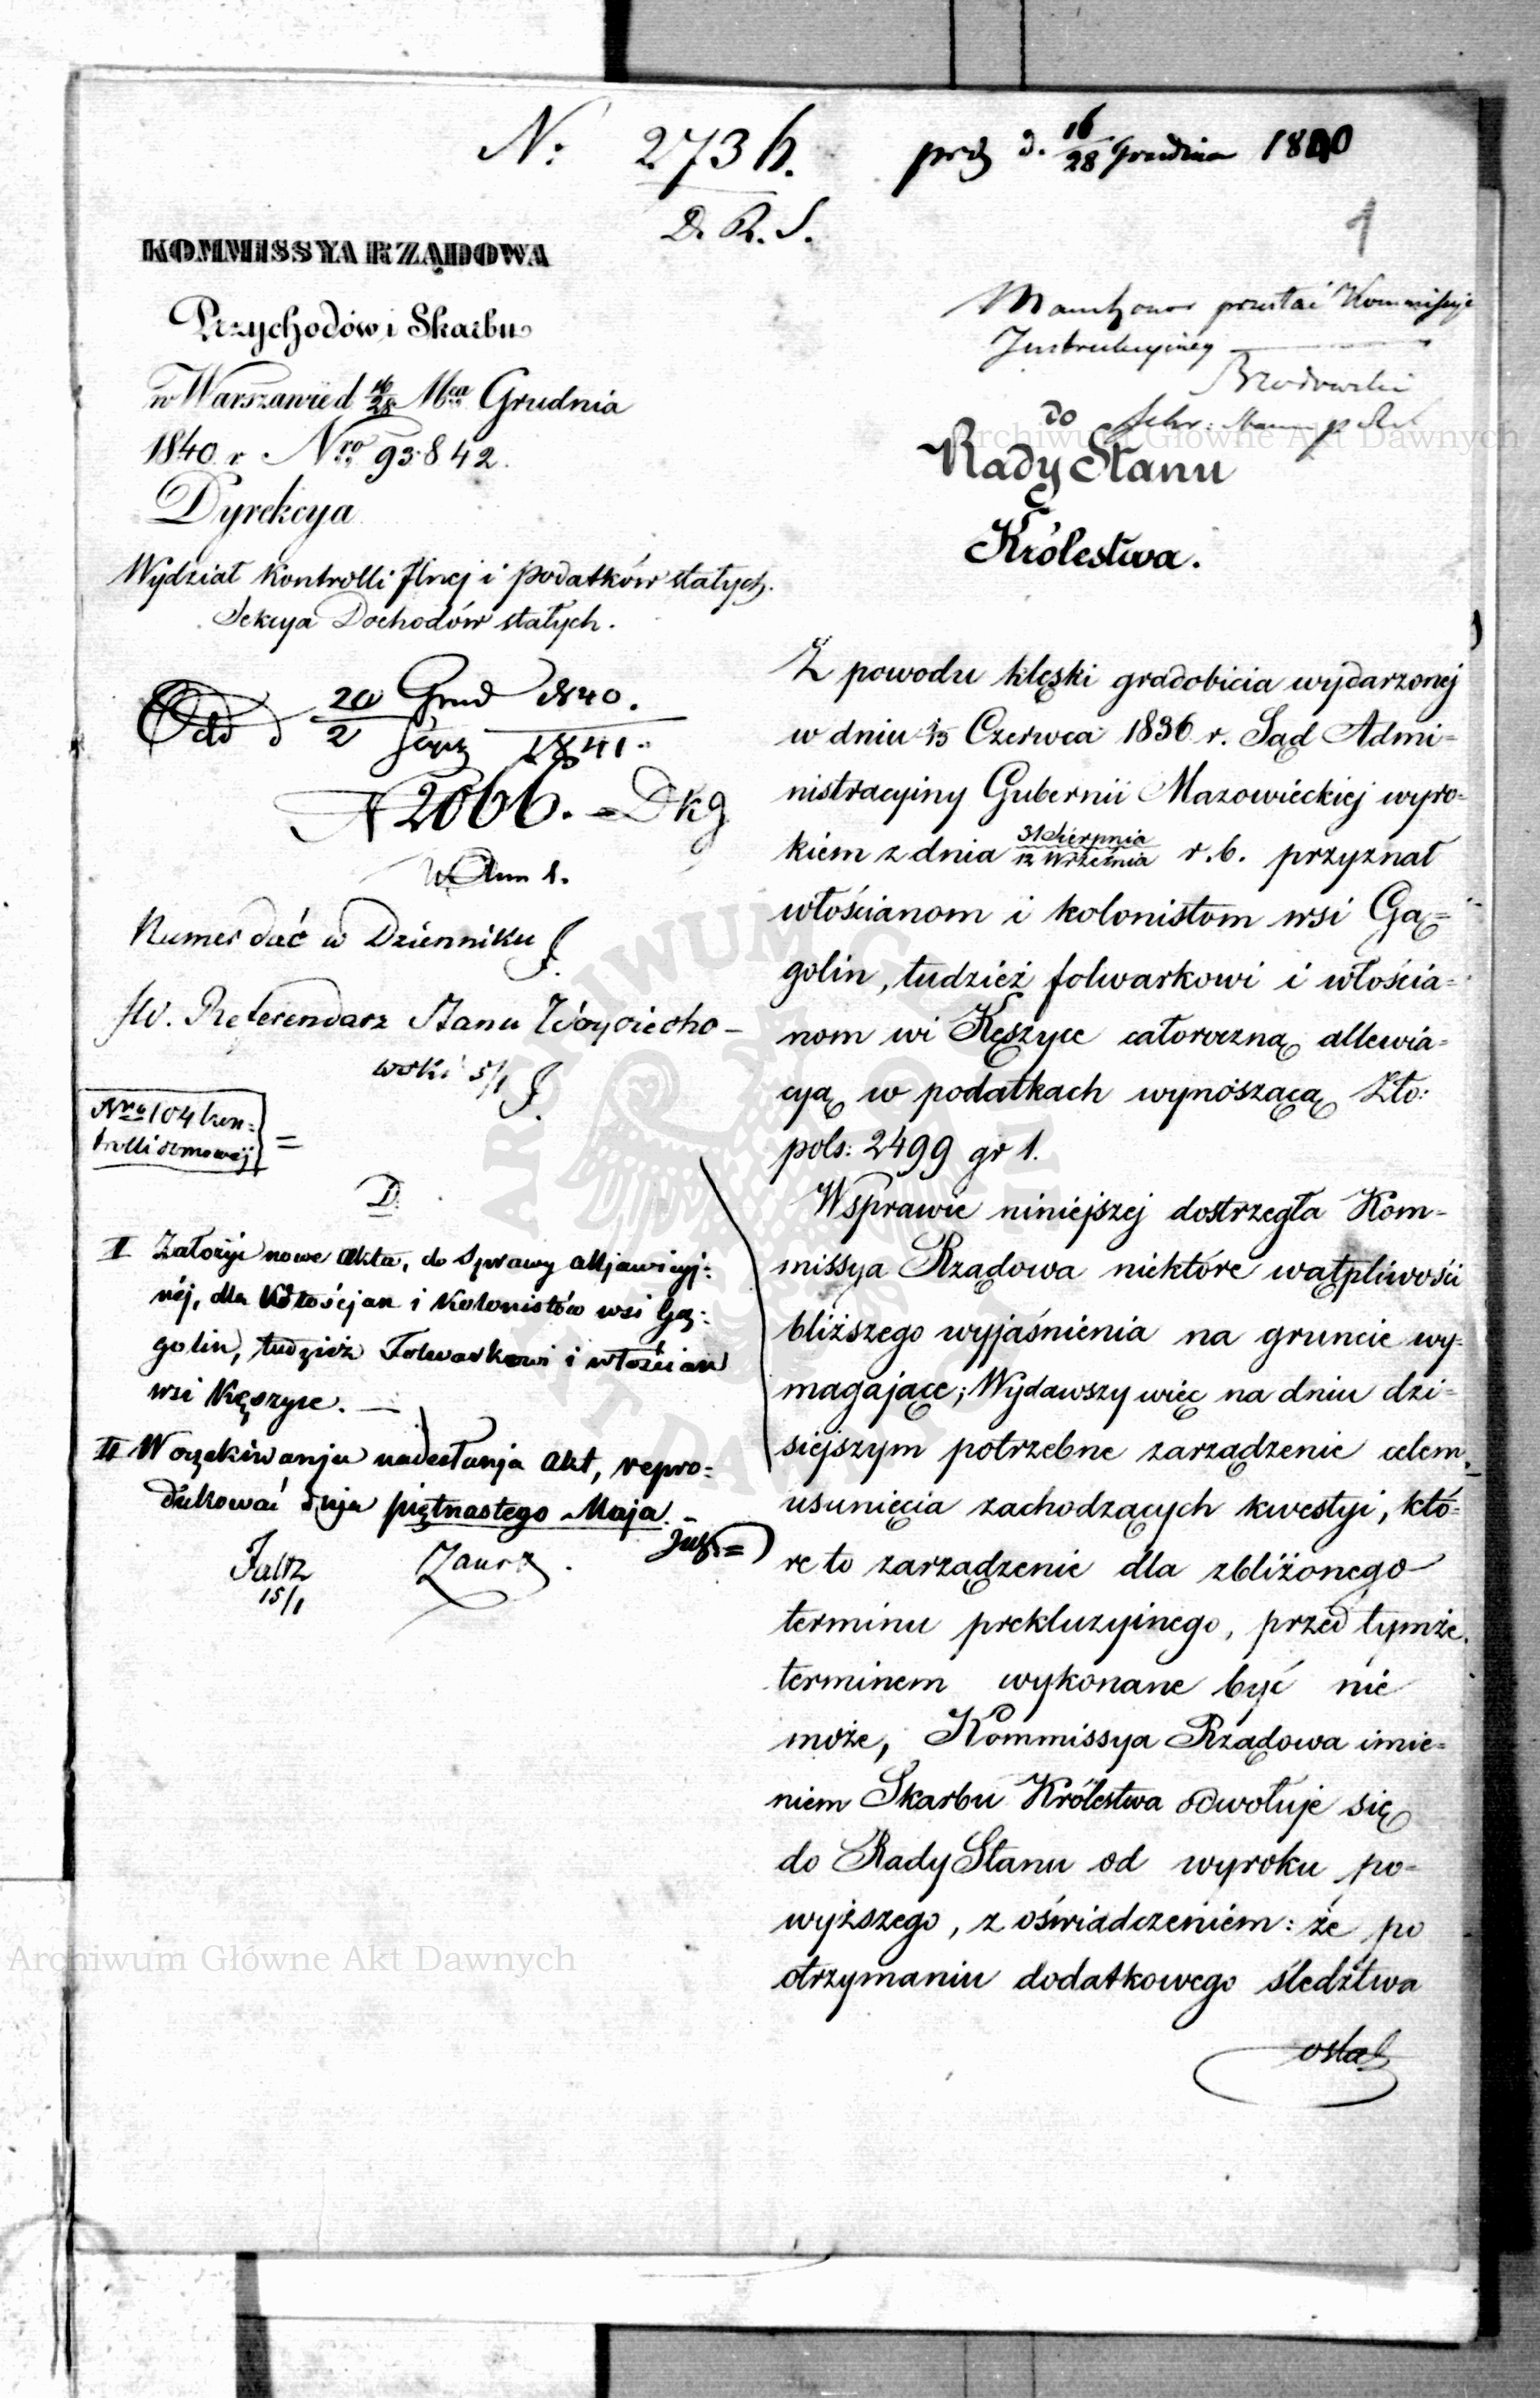 N: 2736.
prz d. 16/28 Grudnia 1840
D. R. S.
1
KOMMISSYA RZĄDOWA
Przychodów i Skarbu
w Warszawie d 16/28 Mca Grudnia
1840 r. Nro 93842.
Dyrekcya
Wydział Kontrolli Jlnej i podatków stałych.
Sekcya Dochodów stałych.
przesłać Kommissyi
Instrukcyiney
Brodowski
do
Rady Stanu
Królestwa.
Odd d 20 Grud 1840.
2 Stycz 1841.
N 2066. = Dkg
Numer dać w Dzienniku J.
JW. Referendarz Stanu Woyciecho-
wski 5/1 J.
Nro 104 kon-
trolli domowej =
D.
I Założyć nowe Akta, do Sprawy allewiacyj-
nej, dla Włościan i Kolonistów wsi Gą-
golin, tudzież Folwarkowi i włościan
wsi Kęszyce. —
II W oczekiwaniu nadesłania Akt, repro-
dukować dnia piętnastego Maja.
15/1
Z powodu klęski gradobicia wydarzonej
w dniu 3/15 Czerwca 1836 r. Sąd Admi-
nistracyiny Gubernii Mazowieckiej wyro-
kiem z dnia 31 Sierpnia/12 Września r. b. przyznał
włościanom i kolonistom wsi Gą-
golin, tudzież folwarkowi i włościa-
nom wi Kęszyce całoroczną allewia-
cyą w podatkach wynoszącą Zło:
pols: 2499 gr 1.
W sprawie niniejszej dostrzegła Kom-
missya Rządowa niektóre wątpliwości
bliższego wyjaśnienia na gruncie wy-
magające; Wydawszy więc na dniu dzi-
siejszym potrzebne zarządzenie celem
usunięcia zachodzących kwestyi, któ-
re to zarządzenie dla zbliżonego
terminu prekluzyinego, przed tymże
terminem wykonane być nie
może, Kommissya Rządowa imie-
niem Skarbu Królestwa odwołuje się
do Rady Stanu od wyroku po-
wyższego, z oświadczeniem: że po
otrzymaniu dodatkowego śledztwa
ostat
Archiwum Główne Akt Dawnych
Archiwum Główne Akt Dawnych
ARCHIWUM GŁÓWNE AKT DAWNYCH